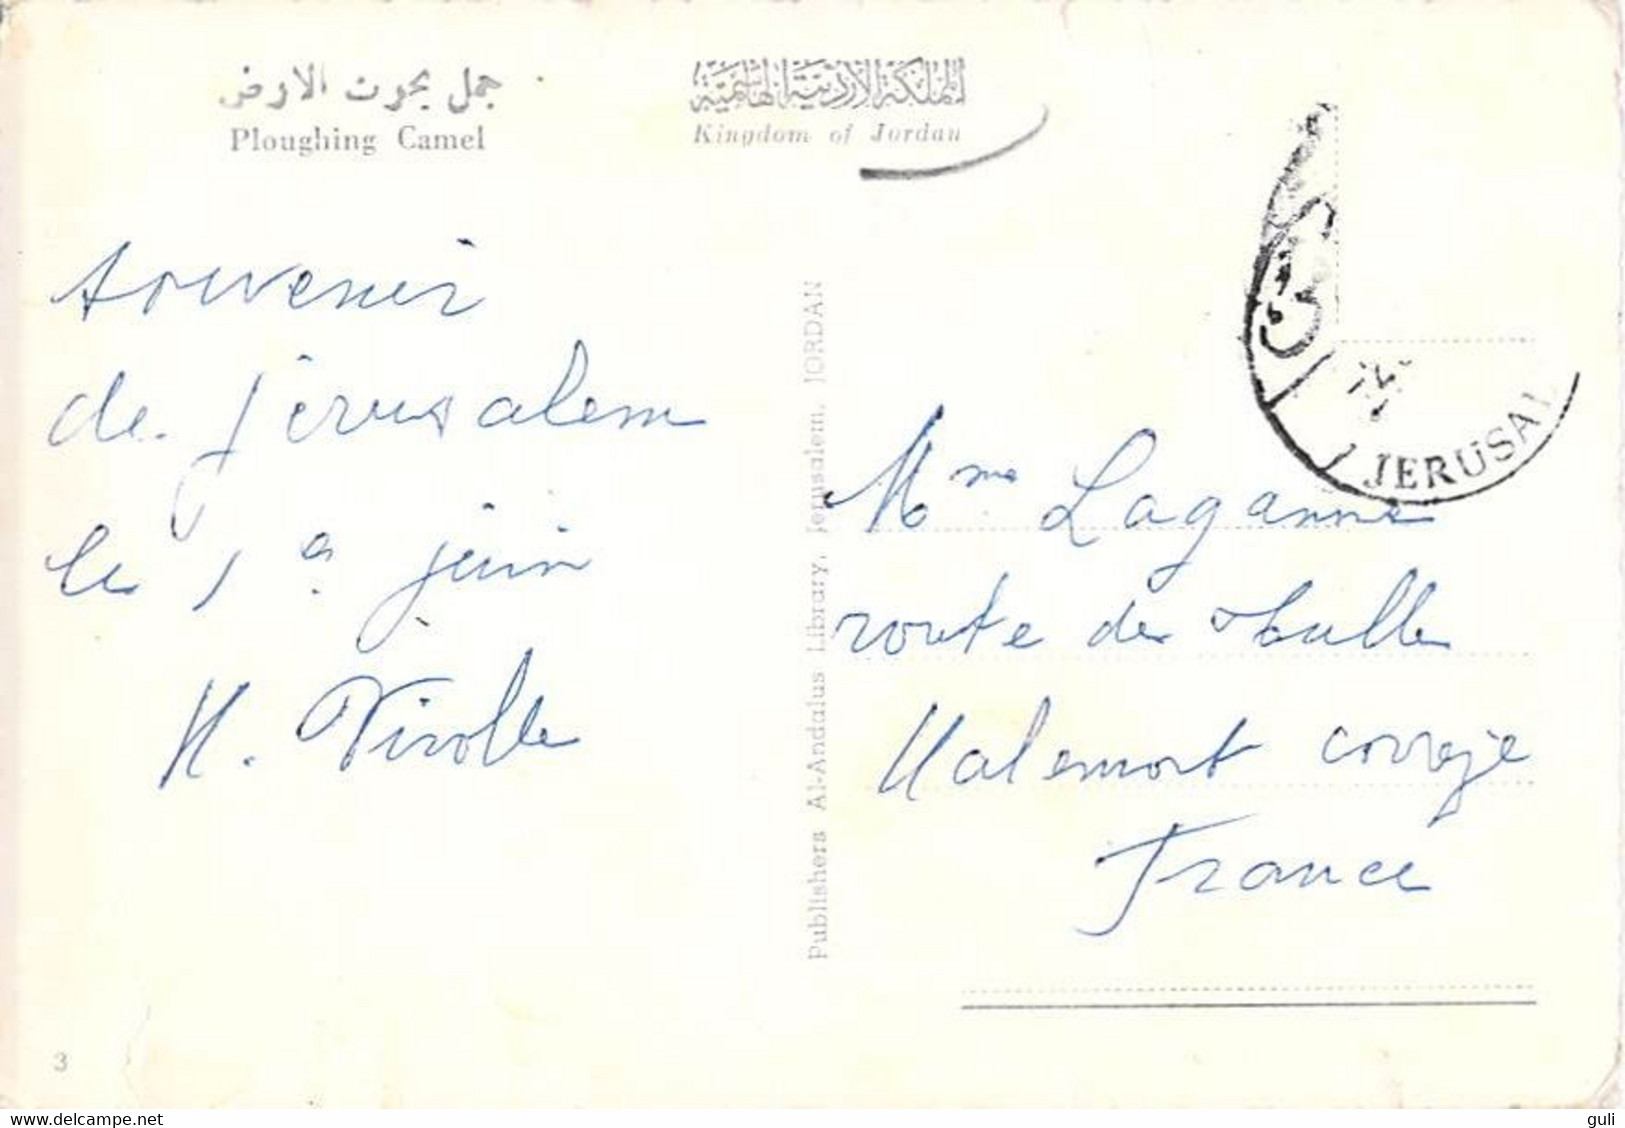 جمل يحرث الارض
Ploughing Camel
المملكة الأردنية الهاشمية
Kingdom of Jordan
souvenir
de Jérusalem
le 1er juin
M. Virolle
Publishers Al-Andalus Library, Jerusalem, JORDAN
JERUSAL
Mme Laganne
route de Tulle
Malemort corrèze
France
3
www.delcampe.net
guli